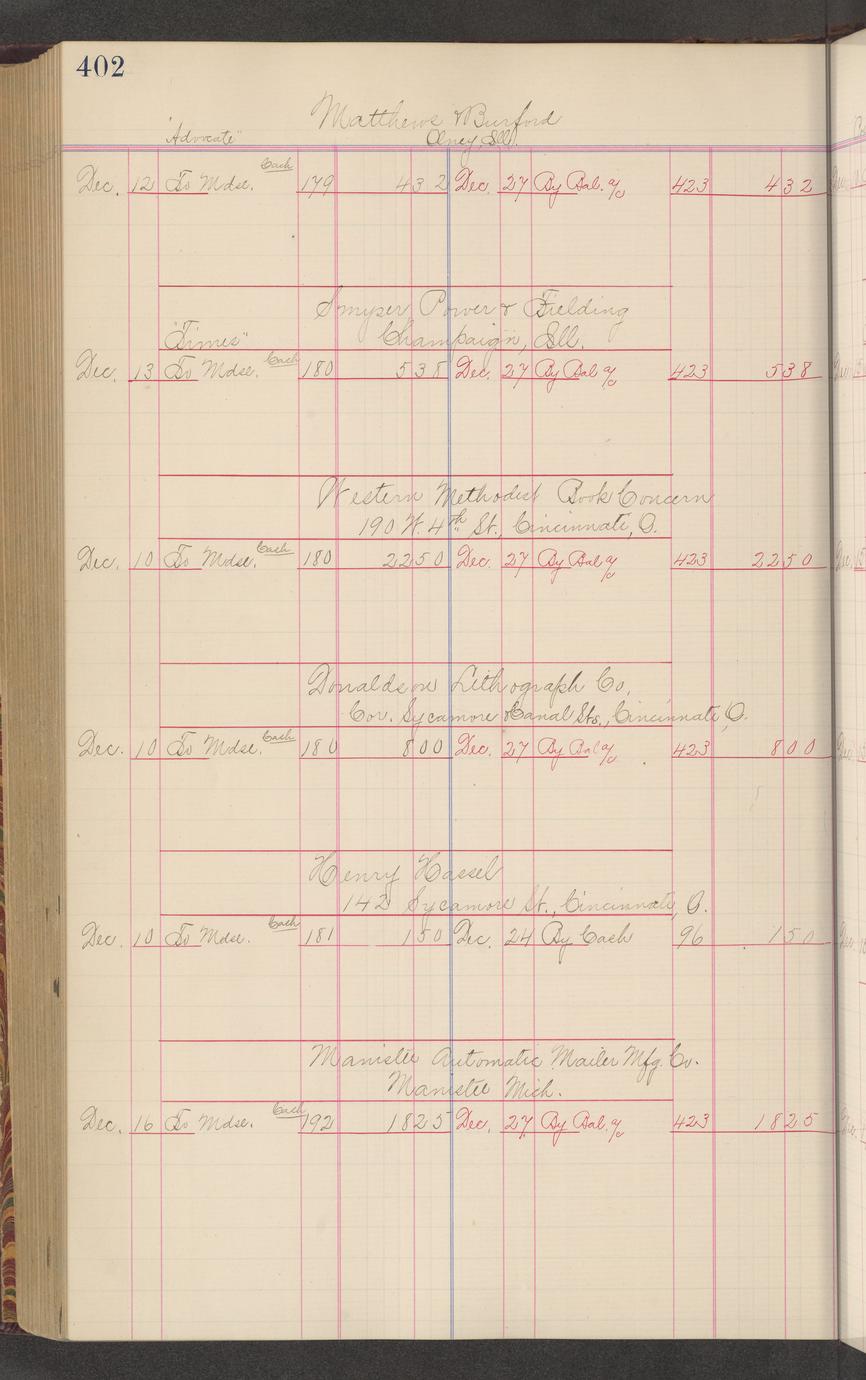 402
Matthews & Burford
"Advocate" Olney, Ill.
Dec. 12 To Mdse. Cash 179 4 32 Dec. 27 By Bal. a/c 423 4 32
Smyser Power & Fielding
"Times" Champaign, Ill.
Dec. 13 To Mdse. Cash 180 5 38 Dec. 27 By Bal a/c 423 5 38
Western Methodist Book Concern
190 W. 4th St., Cincinnati, O.
Dec. 10 To Mdse. Cash 180 22 50 Dec. 27 By Bal a/c 423 22 50
Donaldson Lithograph Co,
Cor. Sycamore & Canal Sts., Cincinnati, O.
Dec. 10 To Mdse. Cash 180 8 00 Dec. 27 By Bal a/c 423 8 00
Henry Hassel
142 Sycamore St., Cincinnati, O.
Dec. 10 To Mdse. Cash 181 1 50 Dec. 24 By Cash 96 1 50
Manistee Automatic Mailer Mfg. Co.
Manistee Mich.
Dec. 16 To Mdse. Cash 192 18 25 Dec. 27 By Bal. a/c 423 18 25